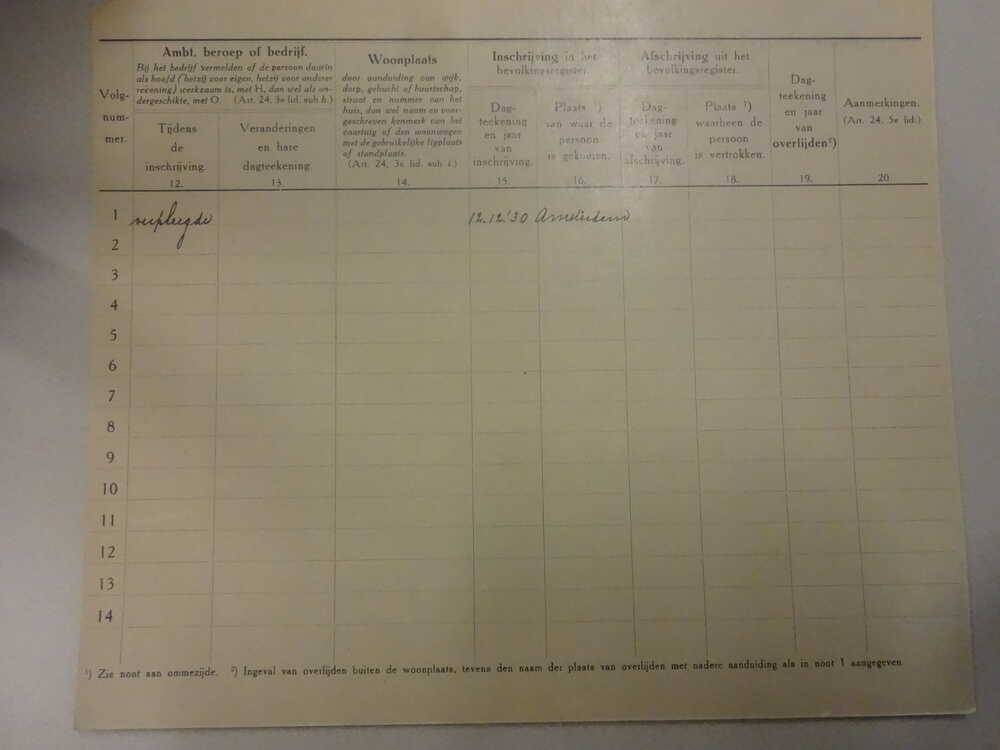 Volg-
num-
mer.
Ambt, beroep of bedrijf.
Bij het bedrijf vermelden of de persoon daarin
als hoofd (hetzij voor eigen, hetzij voor anderer
rekening) werkzaam is, met H, dan wel als on-
dergeschikte, met O. (Art. 24, 3e lid. sub h.)
Tijdens
de
inschrijving.
12.
Veranderingen
en hare
dagteekening.
13.
Woonplaats
door aanduiding van wijk,
dorp, gehucht of buurtschap,
straat en nummer van het
huis, dan wel naam en voor-
geschreven kenmerk van het
vaartuig of den woonwagen
met de gebruikelijke ligplaats
of standplaats.
(Art. 24, 3e lid. sub i.)
14.
Inschrijving in het
bevolkingsregister.
Dag-
teekening
en jaar
van
inschrijving.
15.
Plaats ¹)
van waar de
persoon
is gekomen.
16.
Afschrijving uit het
bevolkingsregister.
Dag-
teekening
en jaar
van
afschrijving.
17.
Plaats ¹)
waarheen de
persoon
is vertrokken.
18.
Dag-
teekening
en jaar
van
overlijden²)
19.
Aanmerkingen.
(Art. 24. 5e lid.)
20.
1 verpleegde 12.12.'30 Amsterdam
2
3
4
5
6
7
8
9
10
11
12
13
14
¹) Zie noot aan ommezijde. ²) Ingeval van overlijden buiten de woonplaats, tevens den naam der plaats van overlijden met nadere aanduiding als in noot 1 aangegeven.